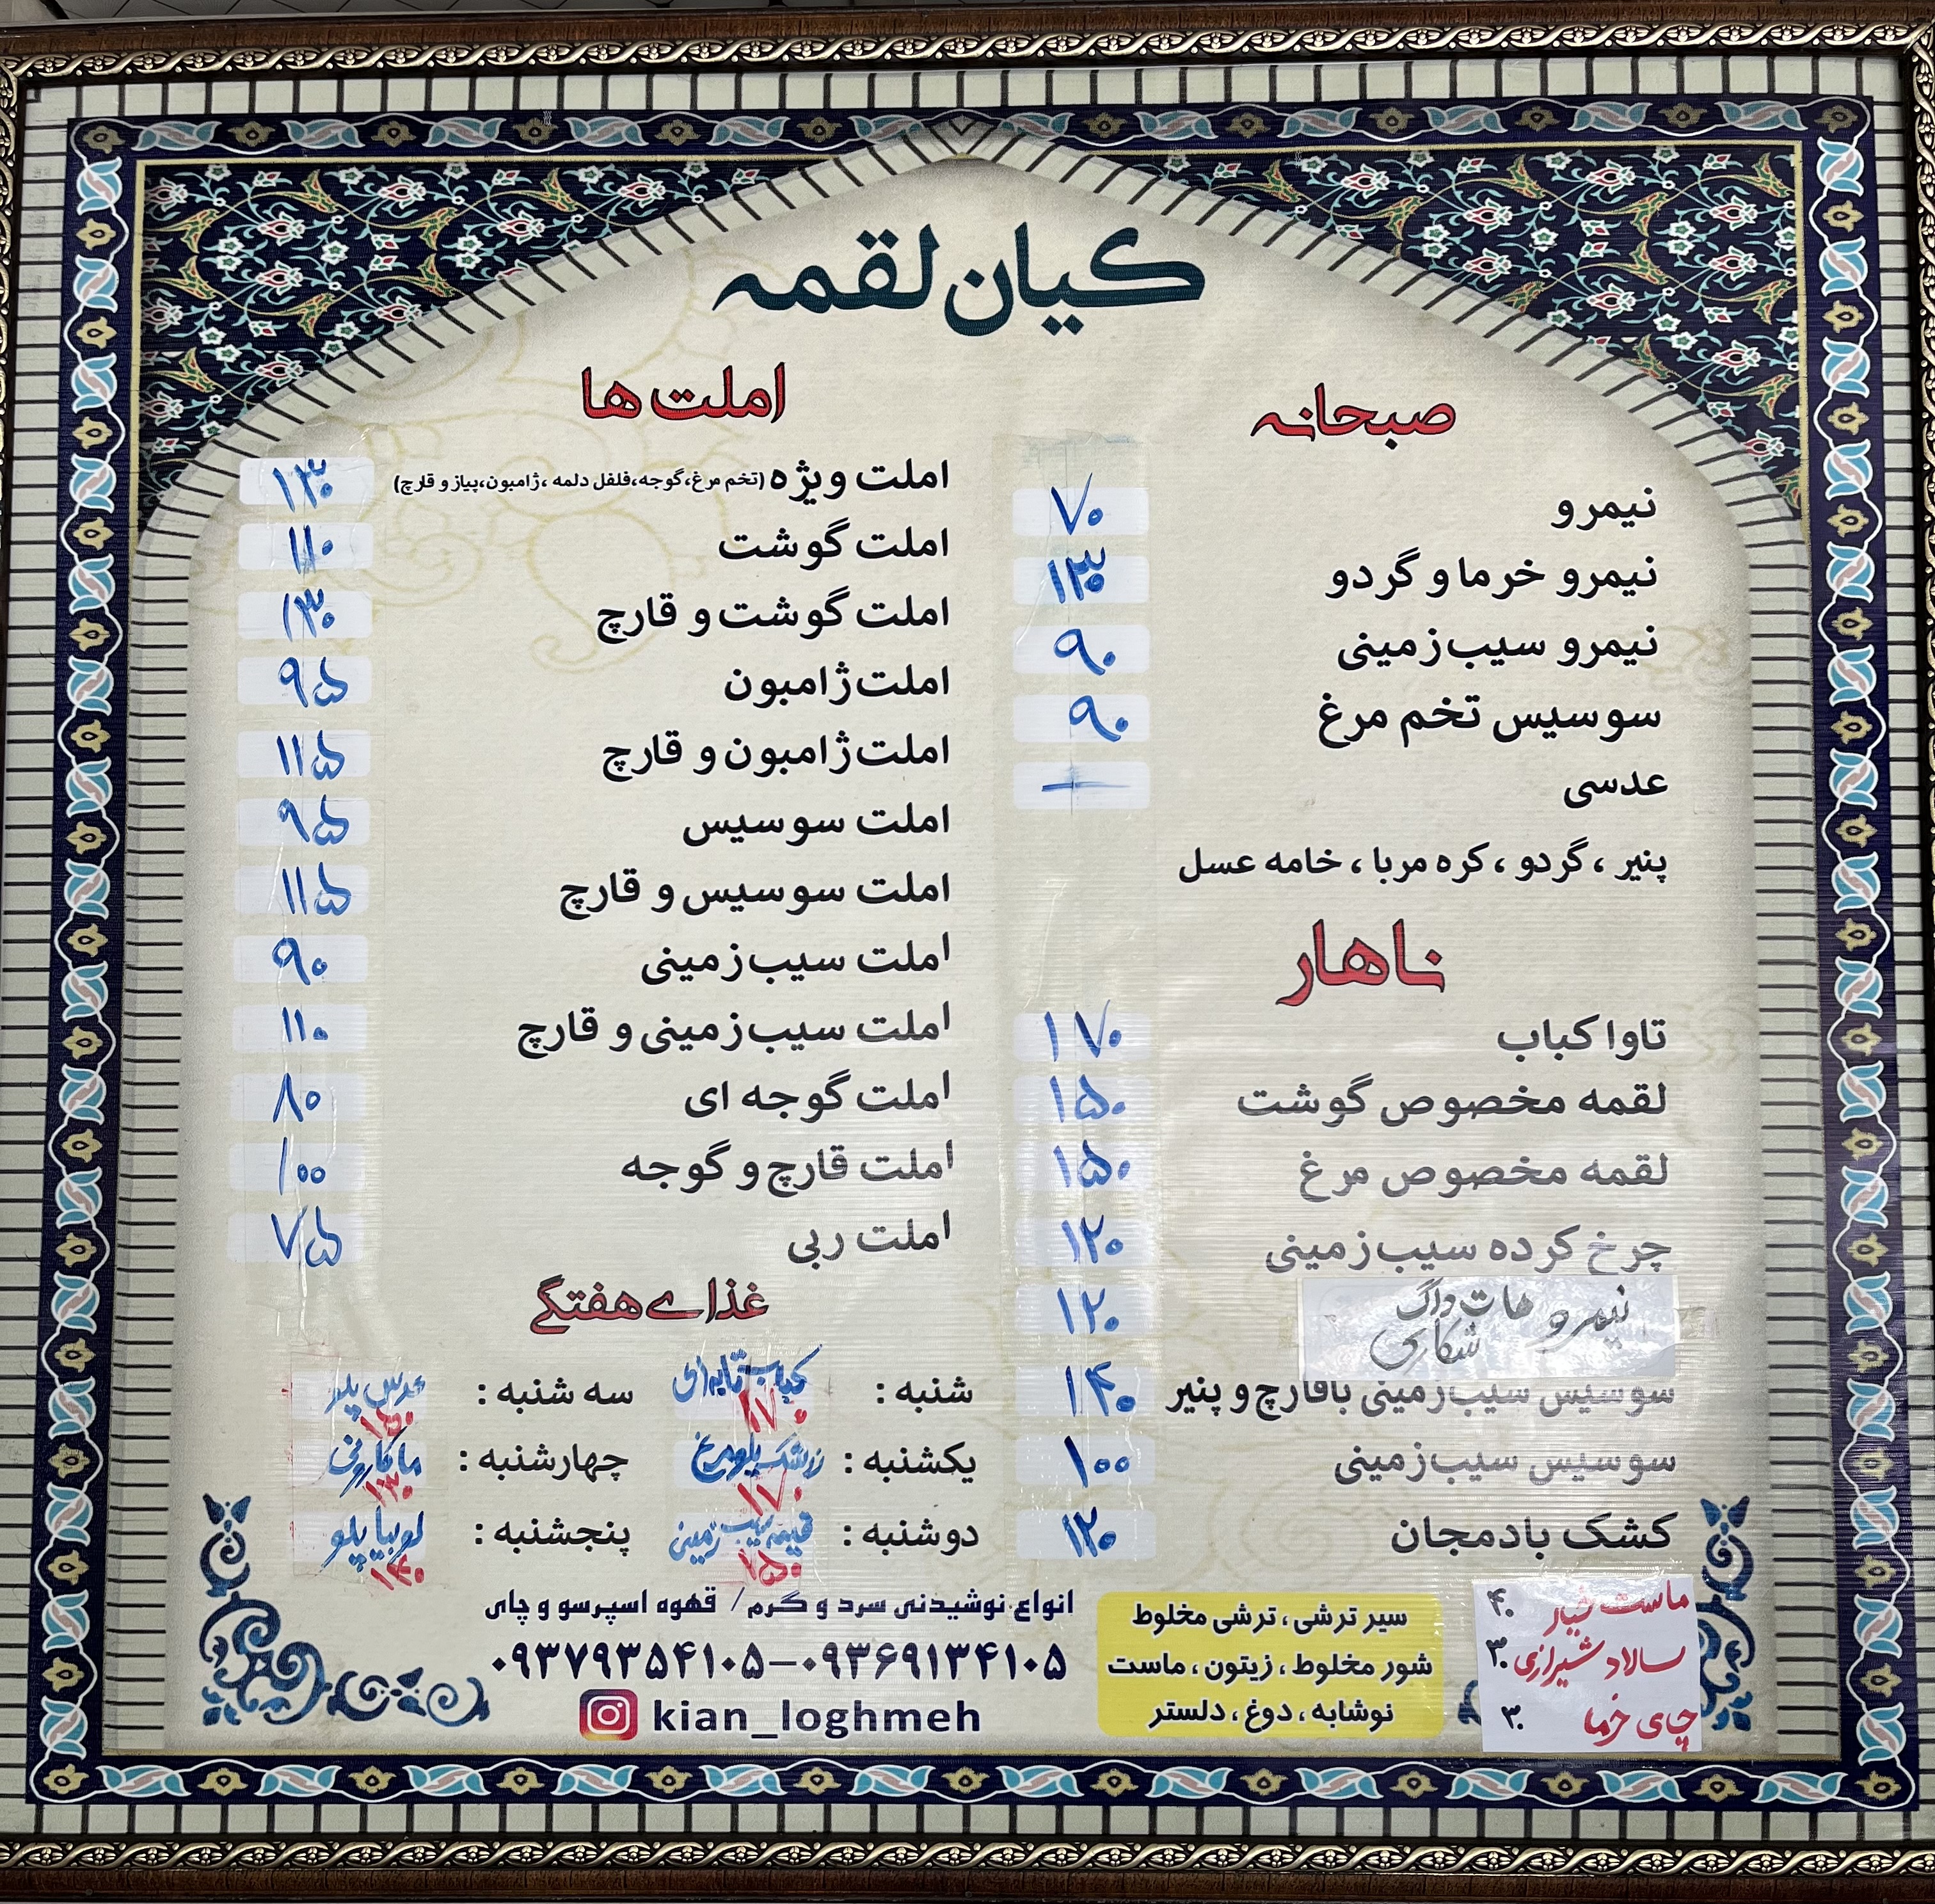 کیان لقمه
صبحانه
نیمرو ۷۰
نیمرو خرما و گردو ۱۳۰
نیمرو سیب زمینی ۹۰
سوسیس تخم مرغ ۹۰
عدسی —
پنیر ، گردو ، کره مربا ، خامه عسل
ناهار
تاوا کباب ۱۷۰
لقمه مخصوص گوشت ۱۵۰
لقمه مخصوص مرغ ۱۵۰
چرخ کرده سیب زمینی ۱۲۰
نیمرو هات داگ ۱۲۰
شکاری
سوسیس سیب زمینی باقارچ و پنیر ۱۴۰
سوسیس سیب زمینی ۱۰۰
کشک بادمجان ۱۲۰
املت ها
املت ویژه (تخم مرغ،گوجه،فلفل دلمه ،ژامبون،پیاز و قارچ) ۱۳۰
املت گوشت ۱۱۰
املت گوشت و قارچ ۱۳۰
املت ژامبون ۹۵
املت ژامبون و قارچ ۱۱۵
املت سوسیس ۹۵
املت سوسیس و قارچ ۱۱۵
املت سیب زمینی ۹۰
املت سیب زمینی و قارچ ۱۱۰
املت گوجه ای ۸۰
املت قارچ و گوجه ۱۰۰
املت ربی ۷۵
غذای هفتگی
شنبه : کباب تابه ای ۱۷۰
یکشنبه : زرشک پلو مرغ ۱۷۰
دوشنبه : قیمه سیب زمینی ۱۵۰
سه شنبه : عدس پلو ۱۵۰
چهارشنبه : ماکارونی ۱۳۰
پنجشنبه : لوبیا پلو ۱۴۰
انواع نوشیدنی سرد و گرم / قهوه اسپرسو و چای
۰۹۳۷۹۳۵۴۱۰۵–۰۹۳۶۹۱۳۴۱۰۵
kian_loghmeh
سیر ترشی ، ترشی مخلوط
شور مخلوط ، زیتون ، ماست
نوشابه ، دوغ ، دلستر
ماست خیار ۴۰
سالاد شیرازی ۳۰
چای خرما ۳۰